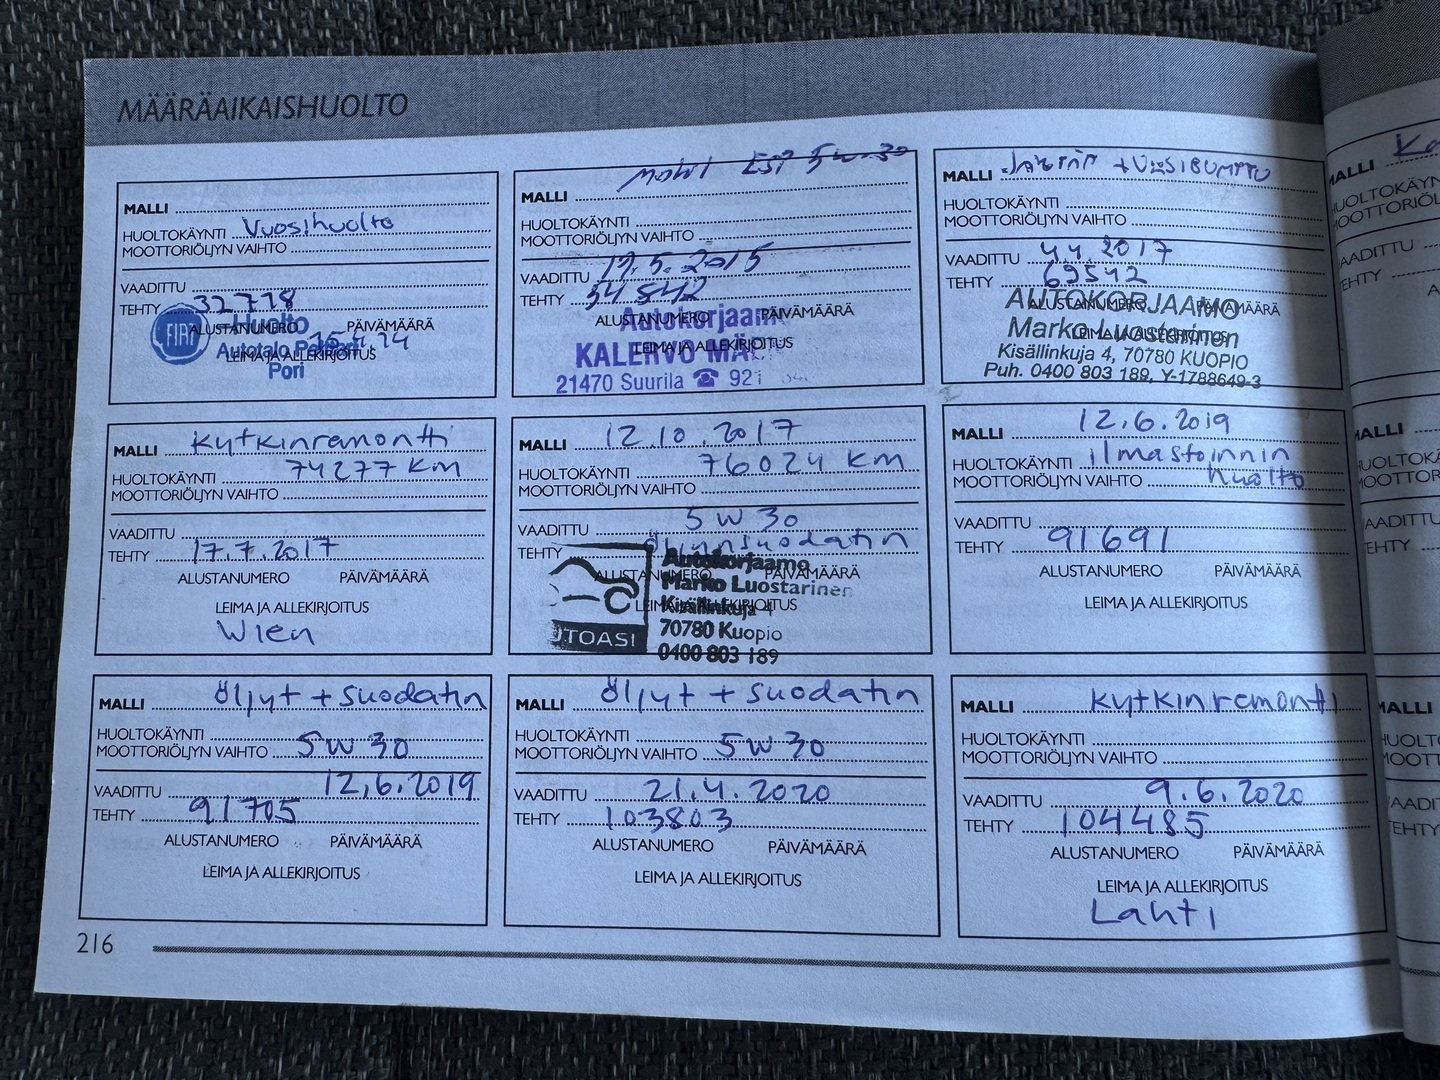 MÄÄRÄAIKAISHUOLTO
MALLI
HUOLTOKÄYNTI Vuosihuolto
MOOTTORIÖLJYN VAIHTO
VAADITTU
TEHTY 32778
ALUSTANUMERO PÄIVÄMÄÄRÄ
LEIMA JA ALLEKIRJOITUS
FIAT Huolto
Autotalo
Pori
MALLI ESP 5w-30
HUOLTOKÄYNTI
MOOTTORIÖLJYN VAIHTO
VAADITTU 19.5.2015
TEHTY 54842
ALUSTANUMERO PÄIVÄMÄÄRÄ
LEIMA JA ALLEKIRJOITUS
Autokorjaam
KALERVO
21470 Suurila ☎ 921
MALLI +VESIPUMPPU
HUOLTOKÄYNTI
MOOTTORIÖLJYN VAIHTO
VAADITTU 4.4.2017
TEHTY 69542
ALUSTANUMERO PÄIVÄMÄÄRÄ
LEIMA JA ALLEKIRJOITUS
AUTOKORJAAMO
Marko Luostarinen
Kisällinkuja 4, 70780 KUOPIO
Puh. 0400 803 189, Y-1788649-3
MALLI Kytkinremontti
HUOLTOKÄYNTI 74277 KM
MOOTTORIÖLJYN VAIHTO
VAADITTU
TEHTY 17.7.2017
ALUSTANUMERO PÄIVÄMÄÄRÄ
LEIMA JA ALLEKIRJOITUS
Wien
MALLI 12.10.2017
HUOLTOKÄYNTI 76024 KM
MOOTTORIÖLJYN VAIHTO
VAADITTU 5W30
TEHTY öljynsuodatin
ALUSTANUMERO PÄIVÄMÄÄRÄ
LEIMA JA ALLEKIRJOITUS
UTOASI
Autokorjaamo
Marko Luostarinen
Kisällinkuja 4
70780 Kuopio
0400 803 189
MALLI 12.6.2019
HUOLTOKÄYNTI ilmastoinnin
MOOTTORIÖLJYN VAIHTO huolto
VAADITTU
TEHTY 91691
ALUSTANUMERO PÄIVÄMÄÄRÄ
LEIMA JA ALLEKIRJOITUS
MALLI Öljyt + suodatin
HUOLTOKÄYNTI
MOOTTORIÖLJYN VAIHTO 5W30
VAADITTU 12.6.2019
TEHTY 91705
ALUSTANUMERO PÄIVÄMÄÄRÄ
LEIMA JA ALLEKIRJOITUS
MALLI Öljyt + suodatin
HUOLTOKÄYNTI
MOOTTORIÖLJYN VAIHTO 5W30
VAADITTU 21.4.2020
TEHTY 103803
ALUSTANUMERO PÄIVÄMÄÄRÄ
LEIMA JA ALLEKIRJOITUS
MALLI Kytkinremontti
HUOLTOKÄYNTI
MOOTTORIÖLJYN VAIHTO
VAADITTU 9.6.2020
TEHTY 104485
ALUSTANUMERO PÄIVÄMÄÄRÄ
LEIMA JA ALLEKIRJOITUS
Lahti
216